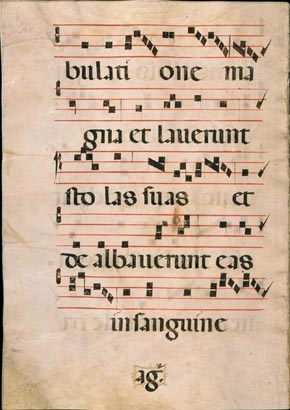 bulati one ma
gna et laverunt
sto las suas et
de albaverunt eas
in sanguine
ag